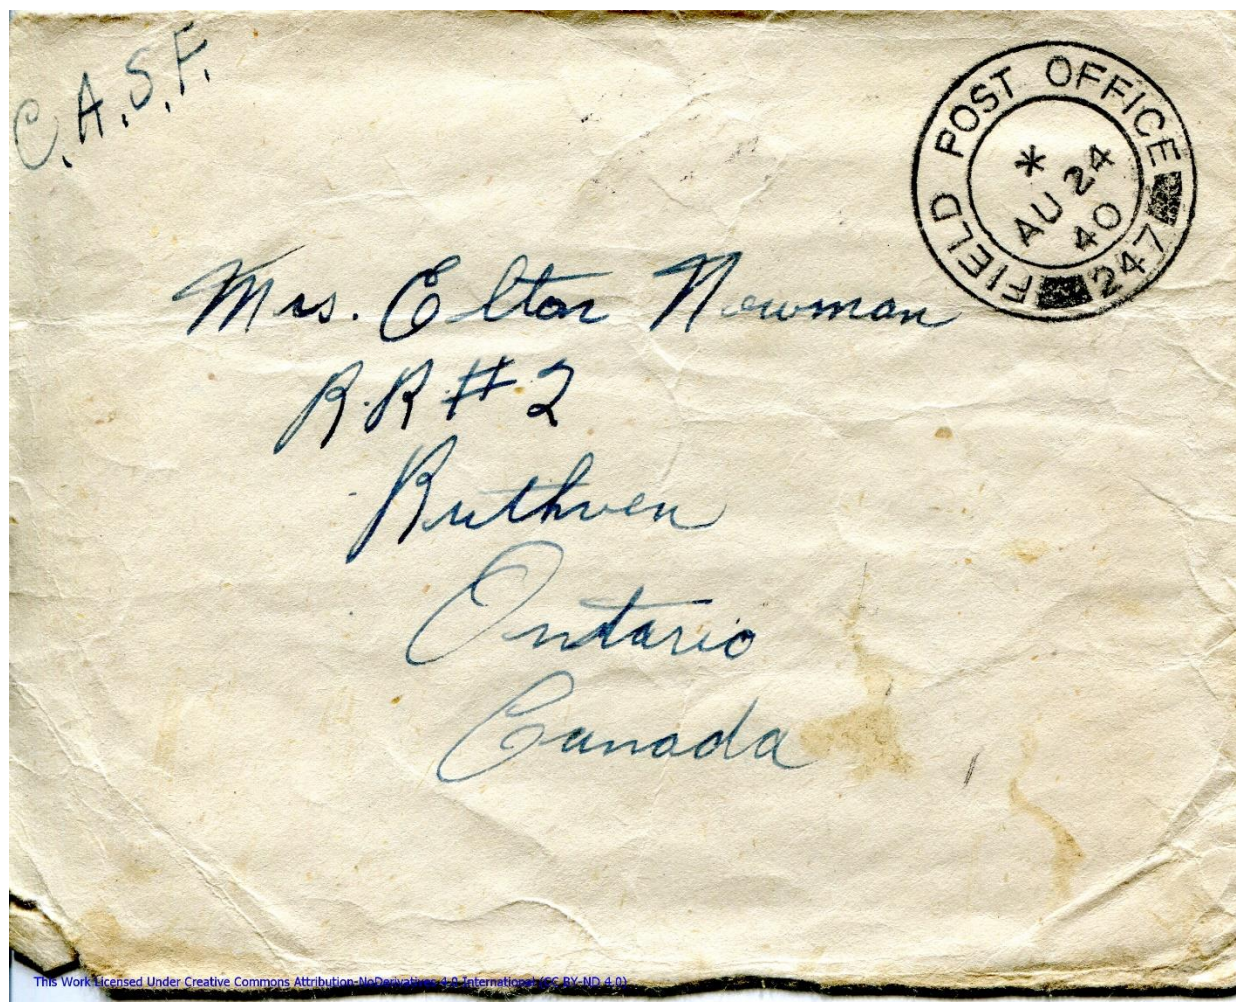 C.A.S.F.
FIELD POST OFFICE
247
*
AU 24
40
Mrs. Elton Newman
R.R # 2
Ruthven
Ontario
Canada
This Work Licensed Under Creative Commons Attribution-NoDerivatives 4.0 International (CC BY-ND 4.0)